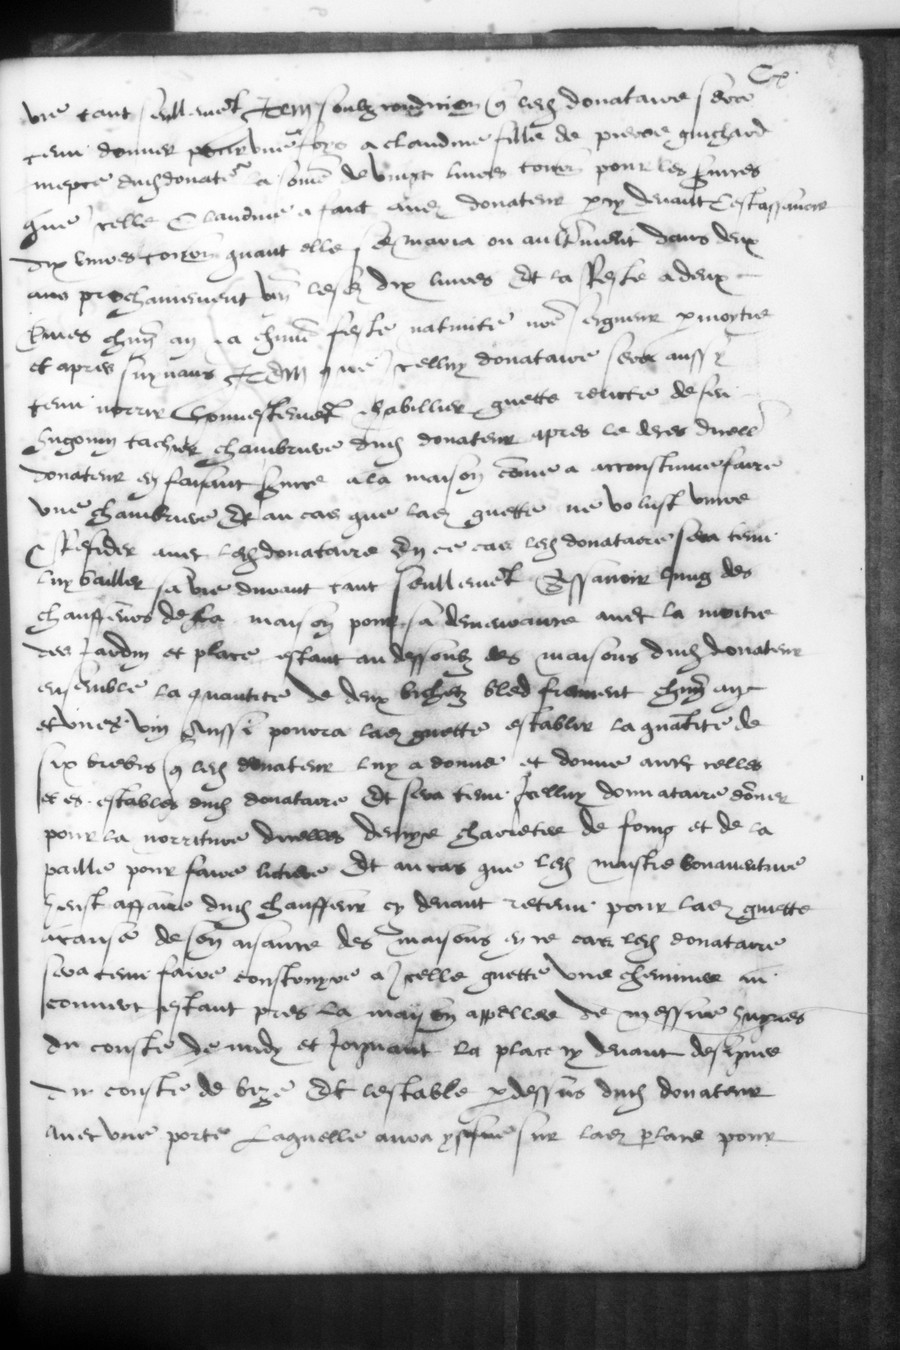 vie tant seullemet Item soubz condition q led donataire sera
tenu donner pour une foys a claudine fille de pierre guichard
niepce dud donate la some de vingt livres tourn pour les services
que icelle Claudine a faict aud donateur cy devant Cestassavoir
dix livres tourn quant elle se maria ou aultrement dans deux
ans prochainement lesd dix livres Et la Reste a deux
livres chun an a chune feste nativite nre seigneur
et apres suyvans Item que icelluy donataire sera aussy
tenu norrir et habillier guette relicte de feu
hugonin tachier chambriere dud donateur apres le deces dicell
donateur en faisant service a la maison come a acconstume faire
une chambriere Et au cas que lad guette ne volust vivre
Resider avec led donataire En ce cas led donataire sera tenu
luy bailler sa vie durant tant seullemet Assavoir lung des
chauffeurs de sa maison pour sa demeurance avec la moitie
des Jardin et place estant au dessoubz des maisons dud donateur
ensemble la quantite de deux bichetz bled froment chun an
et vin Aussi pourra lad guette establir la quatite de
six brebis q led donateur luy a donne et donne avec celles
et es estables dud donataire Et sera tenu Icelluy donnataire doner
pour la norriture dicelles demye charretee de foing et de la
paille pour faire lictiere Et au cas que led maistre bonaventure
heust affaire dud chauffeur cy devant retenu pour lad guette
a cause de son aisance des maisons en ce cas led donataire
sera tenu faire construyre a icelle guette une cheminee
couvert estant pres la maison appellee de messire hugues
du couste de midy et Joignant la place cy devant designee
du couste de bize Et lestable cy dessus dud donateur
avec une porte Laquelle aura yssue sur lad place pour